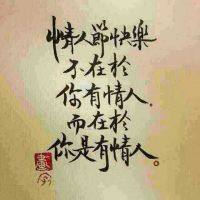 情人節快樂
不在於
你有情人.
而在於
你是有情人。